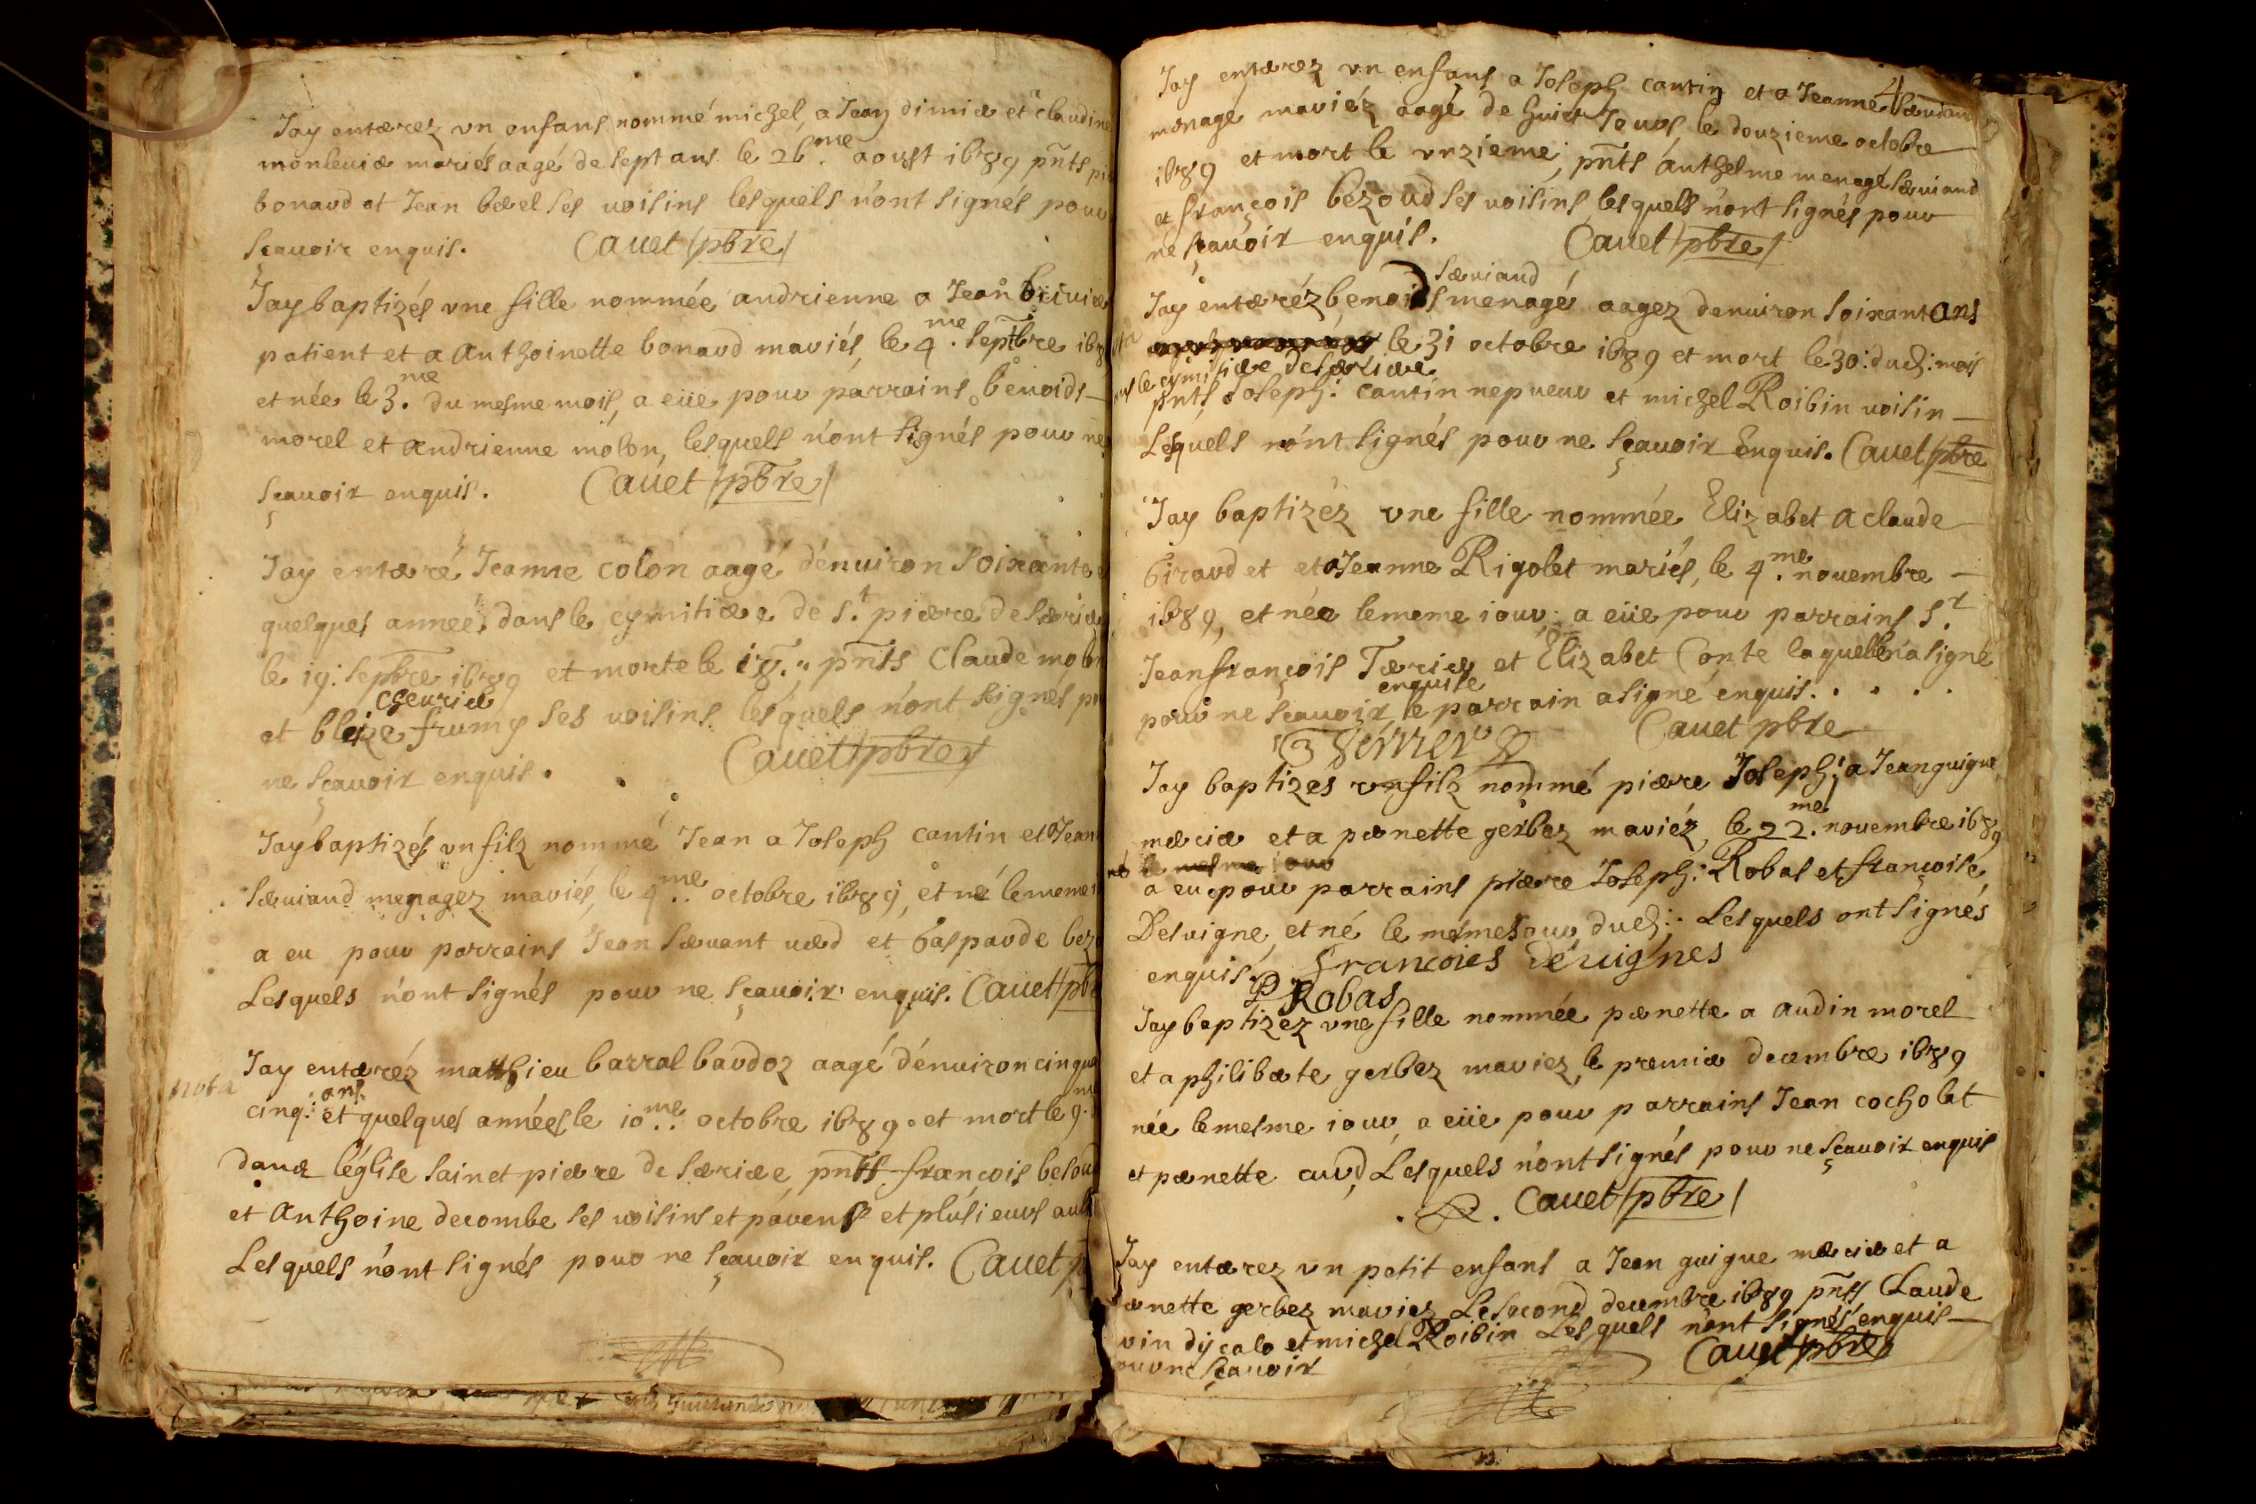 Jay enterrez vn enfans nommé michel, a Jean dimier et a claudine
monleuier mariés aagé de sept ans le 26.me aoust 1689 pnts
bonard et Jean borel ses uoisins lesquels n'ont signés pour
sçauoir enquis. Cauet pbre
Jay baptizés vne fille nommée andrienne a Jean
patient et a anthoinette bonard mariés, le 4.me septbre 168
et née le 3.me du mesme mois, a eüe pour parrains benoids
morel et andrienne molon, lesquels n'ont signés pour ne
sçauoir enquis. Cauet pbre
Jay enterré Jeanne colon aagé d'enuiron soixante
quelques année, dans le cymitiere de st. pierre de
le 19: septbre 1689 et morte le 18. pnts Claude molon
cheurier
et bleize frumy ses uoisins lesquels n'ont signés
ne sçauoir enquis. Cauet pbre
Jay baptizés vn filz nommé Jean a Joseph cantin et Jean
seruiand menagez mariés, le 4.me octobre 1689, et né le meme
a eu pour parrains Jean seruant et gasparde
Lesquels n'ont signés pour ne sçauoir enquis. Cauet pbre
nota
Jay enterréz matthieu barral bardoz aagé d'enuiron cinqua
ans
cinq: et quelques années, le 10.me octobre 1689. et mort le 9.
dans l'église sainct pierre de, pnts françois
et anthoine decombe ses uoisins et parens et plusieurs
Lesquels n'ont signés pour ne sçauoir enquis. Cauet
4
Jay enterrez vn enfans a Joseph cantin et a Jeanne
menagé mariéz aagé de huict Jours le douzieme octobre
1689 et mort le vnzieme, pnts anthelme menagé seruiand
et françois bezoud ses uoisins, lesquels n'ont signés pour
ne sçauoir enquis. Cauet pbre
seruiand
Jay enterréz benoids menagé aagez denuiron soixant ans
le 31 octobre 1689 et mort le 30: dud: mois
le cymitiere
pnts Joseph: cantin nepueur et michel Roibin uoisin
Lesquels n'ont signés pour ne sçauoir Enquis. Cauet pbre
Jay baptizéz vne fille nommée Elizabet a claude
girard et et a Jeanne Rigolet mariés, le 4.me nouembre
1689, et née le meme iour, a eüe pour parrains sr.
Jean françois et Elizabet Conte laquelle n'a signé
enquise
pour ne sçauoir, le parrain a signé enquis. . . .
Cauet pbre
Jay baptizes vn filz nommé pierre Joseph: a Jean guigue
mercier et a pernette gerbez mariéz, le 22.me nouembre 1689
né le mesme iour
a eu pour parrains pierre Joseph: Robas et françoise
Desuigne, et né le mesme Jour dud: Lesquels ont signés
enquis. francoies déuignes
P Robas
Jay baptizez vne fille nommée pernette a audin morel
et a philiberte gerbez mariez, le premier decembre 1689
née le mesme iour, a eüe pour parrains Jean cocholat
et pernette curd, Lesquels n'ont signés pour ne sçauoir enquis
Cauet pbre
Jay enterez vn petit enfans a Jean guigue mercier et a
ernette gerbez mariez Le second decembre 1689 pnts Claude
et michel Roibin Lesquels n'ont signés enquis
our ne sçauoir Cauet pbre